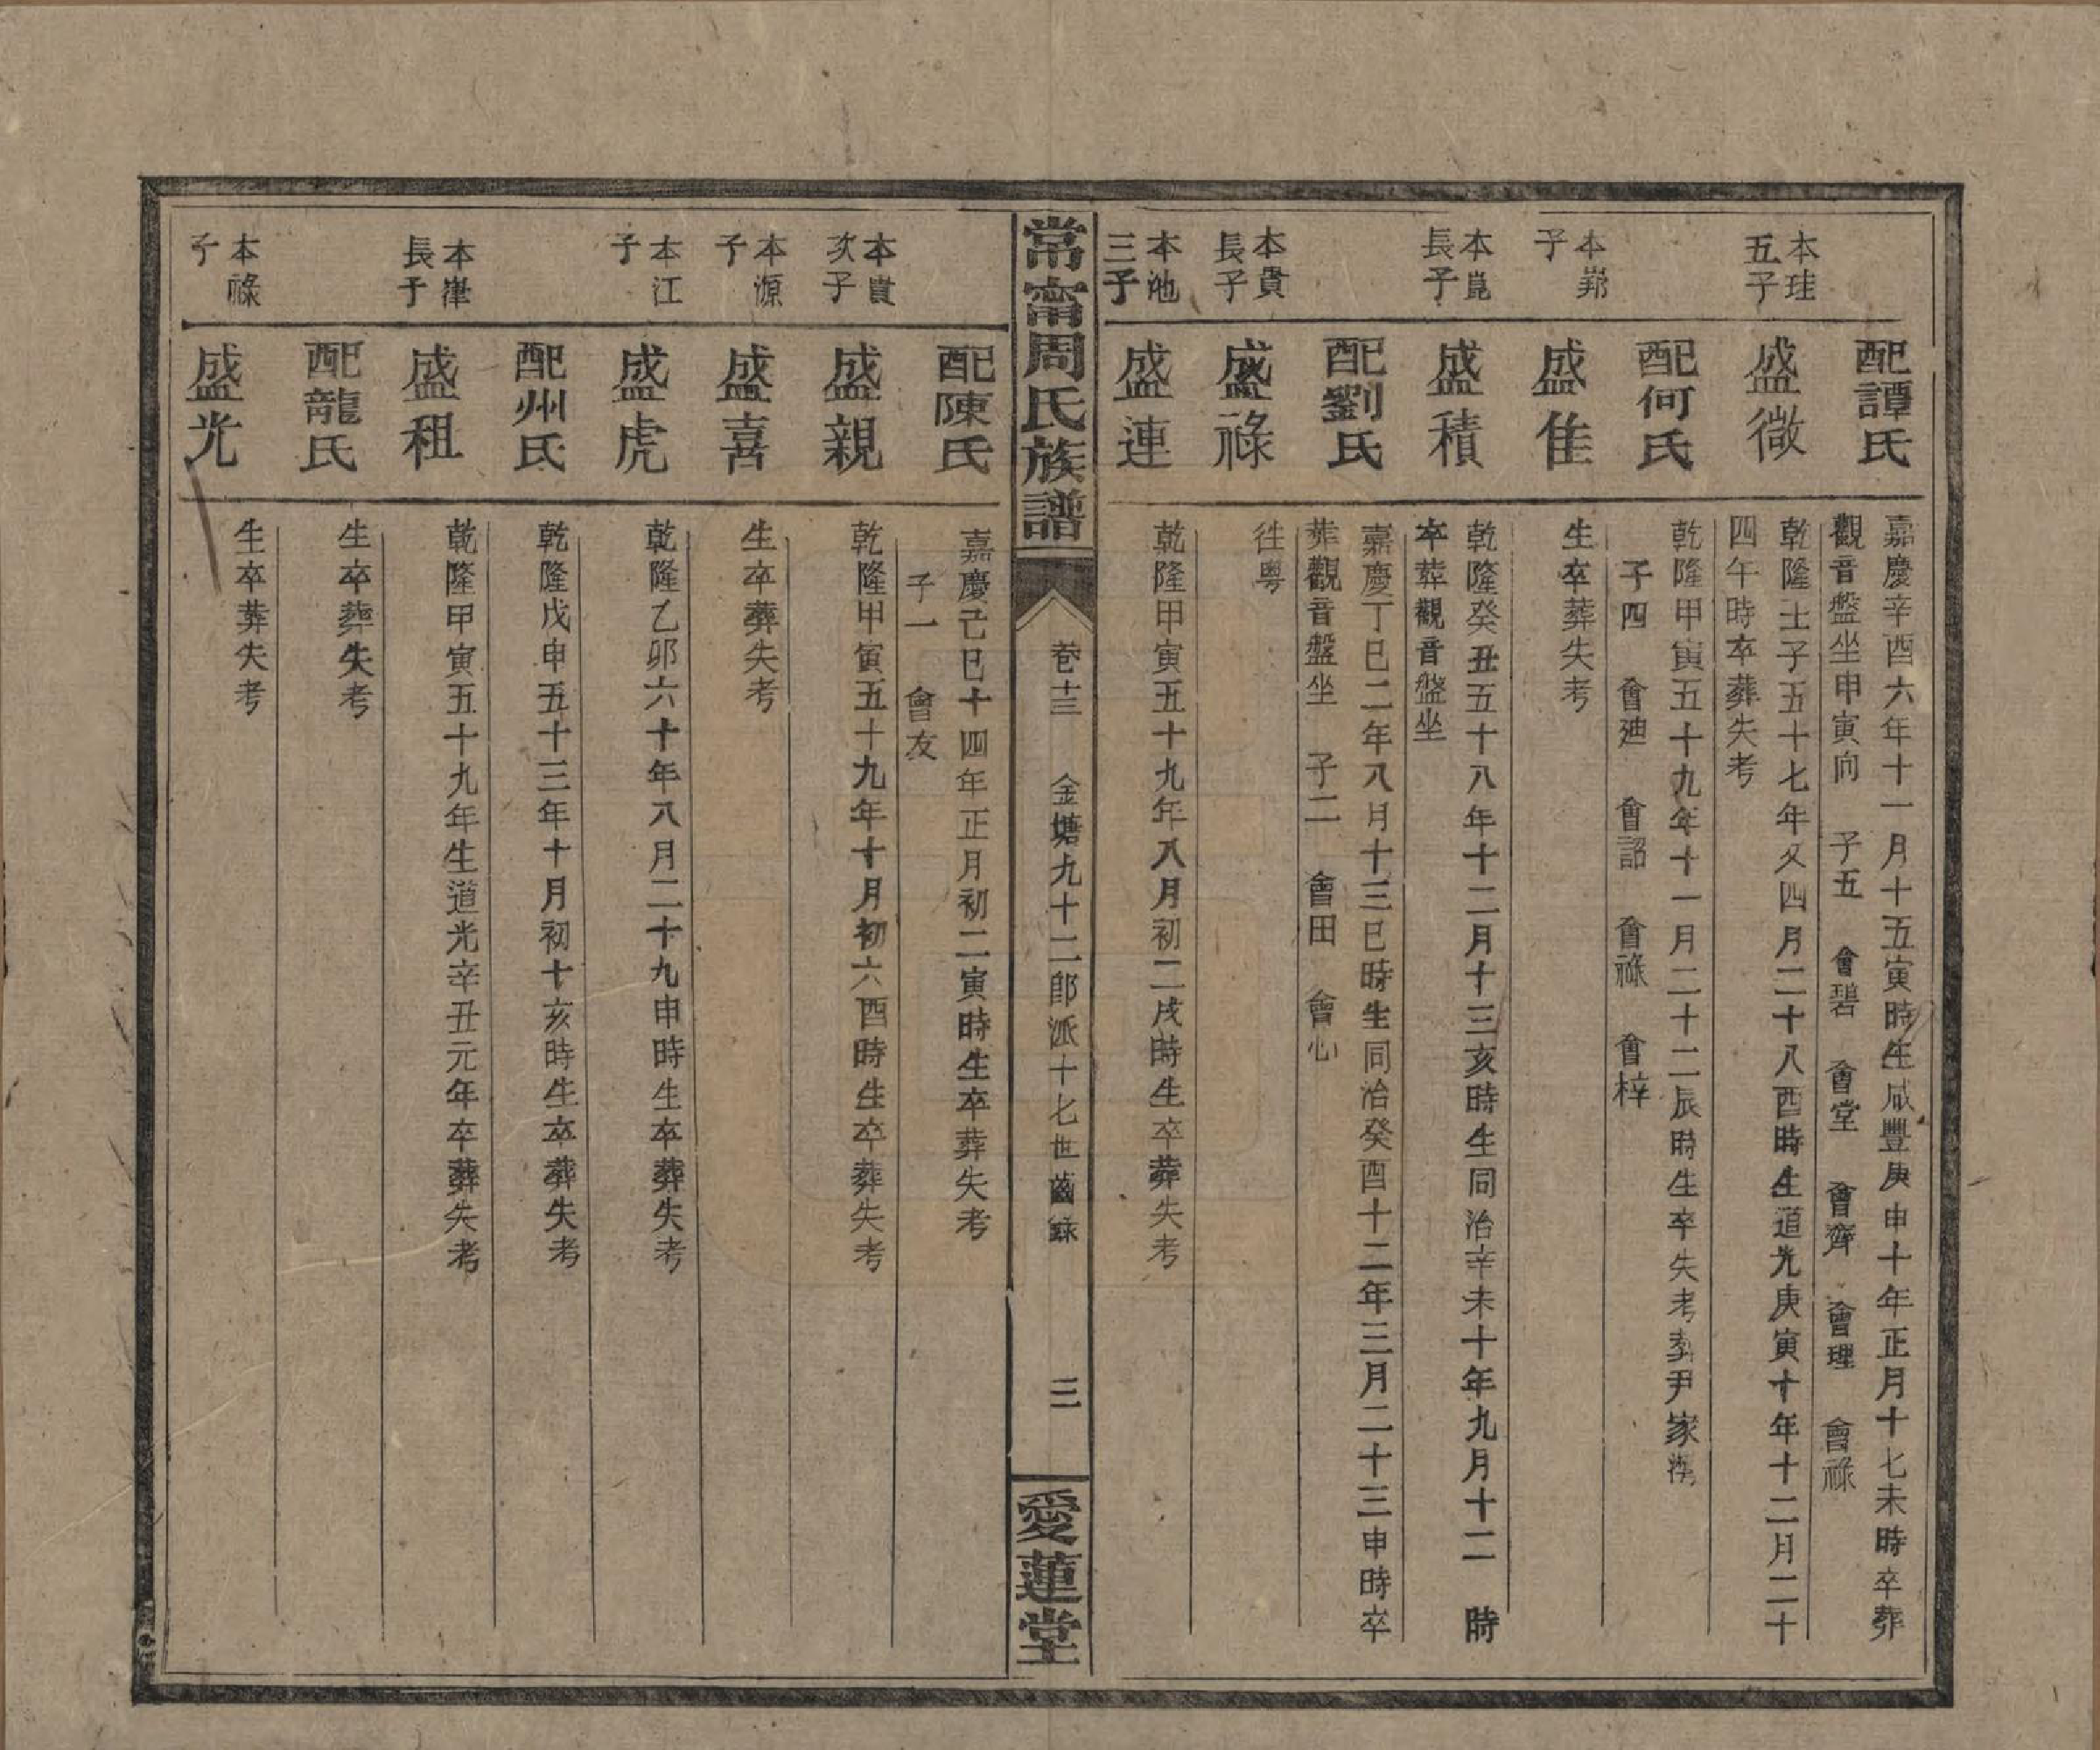 配譚氏
嘉慶辛酉六年十一月十五寅時生咸豐庚申十年正月十七未時卒葬
觀音盤坐申寅向 子五 會碧 會堂 會齊 會理 會祿
本珪
五子
盛微
乾隆壬子五十七年又四月二十八酉時生道光庚寅十年十二月二十
四午時卒葬失考
配何氏
乾隆甲寅五十九年十一月二十二辰時生卒失考葬尹家
子四 會廸 會詔 會祿 會梓
本
子
盛隹
生卒葬失考
本崑
長子
盛積
乾隆癸丑五十八年十二月十三亥時生同治辛未十年九月十二 時
卒葬觀音盤坐
配劉氏
嘉慶丁巳二年八月十三巳時生同治癸酉十二年三月二十三申時卒
葬觀音盤坐 子二 會田 會心
本貴
長子
盛祿
徃粵
本池
三子
盛連
乾隆甲寅五十九年八月初二戌時生卒葬失考
常甯周氏族譜
卷十三
金塘九十二郎派十七世齒錄
三
愛蓮堂
配陳氏
嘉慶己巳十四年正月初二寅時生卒葬失考
子一 會友
本貴
次子
盛親
乾隆甲寅五十九年十月初六酉時生卒葬失考
本源
子
盛喜
生卒葬失考
本江
子
盛虎
乾隆乙卯六十年八月二十九申時生卒葬失考
配州氏
乾隆戊申五十三年十月初十亥時生卒葬失考
本
長子
盛租
乾隆甲寅五十九年生道光辛丑元年卒葬失考
配龍氏
生卒葬失考
本祿
子
盛光
生卒葬失考